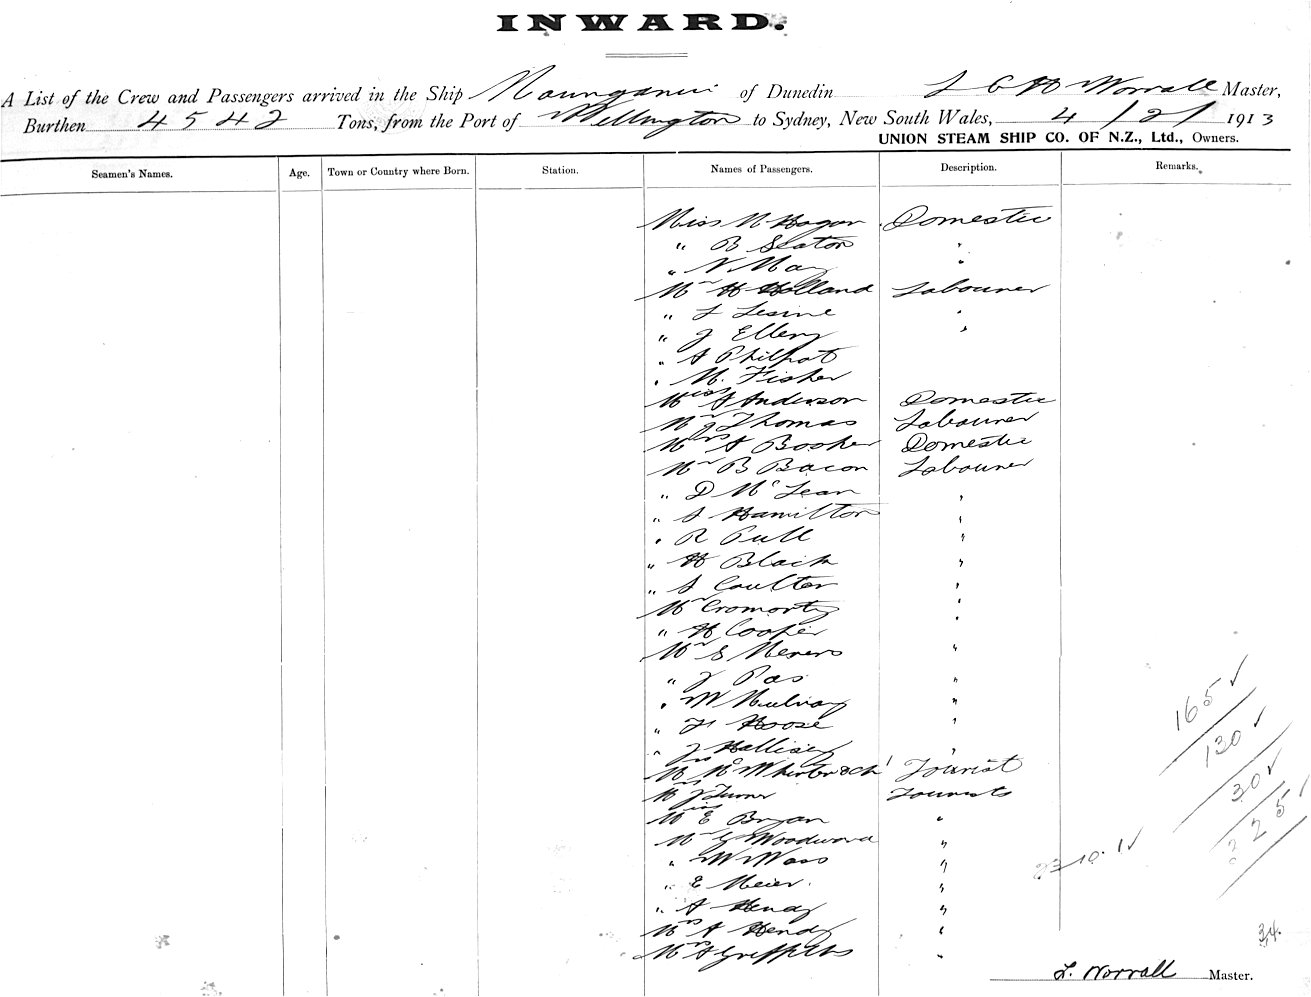 INWARD.
A List of the Crew and Passengers arrived in the Ship Maunganui of Dunedin L C H Worrall Master,
Burthen 4542 Tons, from the Port of Wellington to Sydney, New South Wales, 4/2/1913
UNION STEAM SHIP CO. OF N.Z., Ltd., Owners.
Seamen's Names. Age. Town or Country where Born. Station. Names of Passengers. Description. Remarks.
Miss N Hogan Domestic
" B Seaton "
" N May "
Mr H Holland Labourer
" L Lesine "
" J Ellery "
" A Philpot
" M. Fisher
Miss A Anderson Domestic
Mr J Thomas Labourer
Mrs A Booker Domestic
Mr B Bacon Labourer
" D McLean "
" S Hamilton "
" R Pull "
" H Black "
" S Coulter "
Mr Cromorty "
" H Cooper "
Mr S "
" J Pas "
" W Mulvay "
" H Hoose "
" J Hallisey "
Tourist
Mrs J Turner Tourists
Miss E Bryan "
Mr G Woodward "
" W Wass "
" E Meier. "
" A Hendy "
Mrs A Hendy "
Mrs A Griffiths "
165 ✓
130 ✓
30 ✓
5
10.1 ✓
34.
L. Worrall Master.